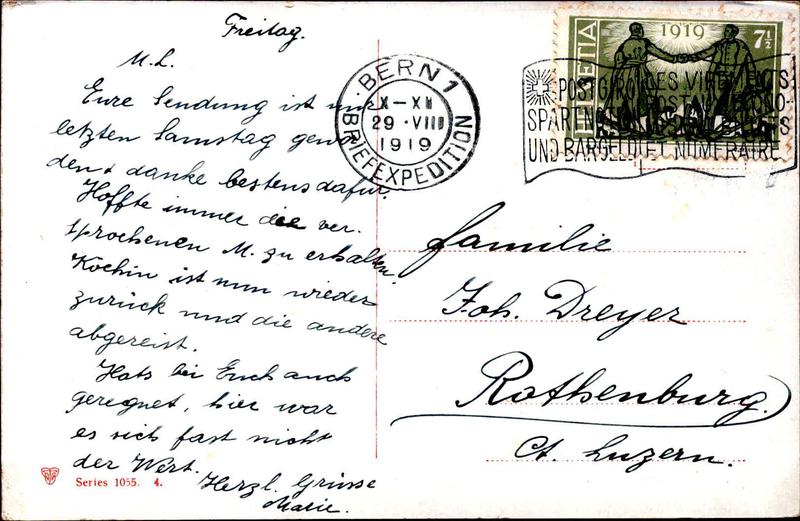 Freitag.
M. L.
Eure Sendung ist mir
letzten Samstag gewor
den & danke bestens dafür.
Hoffte immer die ver-
sprochenen M. zu erhalten.
Köchin ist nun wieder
zurück und die andere
abgereist.
Hats bei Euch auch
geregnet, hier war
es sich fast nicht
der Wert.
Herzl. Grüsse
Marie.
Series 1055. 4.
BERN 1
X-XI
29·VIII
1919
BRIEFEXPEDITION
HELVETIA
1919
7½
POSTGIRO LES VIREMENTS
SPAREN
UND BARGELD ET NUMÉRAIRE
Familie
Joh. Dreyer
Rothenburg.
Ct. Luzern.